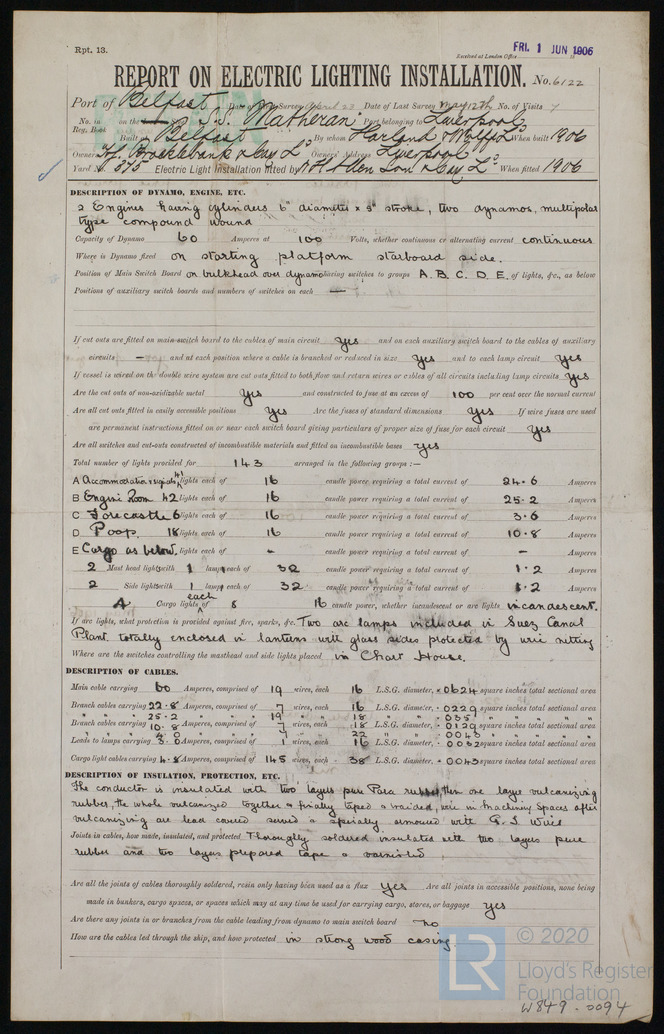 Rpt. 13.
FRI. 1 JUN 1906
Received at London Office
REPORT ON ELECTRIC LIGHTING INSTALLATION. No. 6122
Port of Belfast Date of First Survey April 23 Date of Last Survey May 12th No. of Visits 7
No. in Reg. Book on the S.S. "Matheran" Port belonging to Liverpool
Built at Belfast By whom Harland & Wolff Ld When built 1906
Owners T. & J. Brocklebank Ld Owners' Address Liverpool
Yard No. 375 Electric Light Installation fitted by When fitted 1906
DESCRIPTION OF DYNAMO, ENGINE, ETC.
2 Engines having cylinders 6" diameter x 5" stroke, two dynamos, multipolar
type compound wound
Capacity of Dynamo 60 Amperes at 100 Volts, whether continuous or alternating current continuous
Where is Dynamo fixed on starting platform starboard side.
Position of Main Switch Board on bulkhead over dynamo having switches to groups A. B. C. D. E. of lights, &c., as below
Positions of auxiliary switch boards and numbers of switches on each —
If cut outs are fitted on main switch board to the cables of main circuit yes and on each auxiliary switch board to the cables of auxiliary
circuits — and at each position where a cable is branched or reduced in size yes and to each lamp circuit yes
If vessel is wired on the double wire system are cut outs fitted to both flow and return wires or cables of all circuits including lamp circuits yes
Are the cut outs of non-oxidizable metal yes and constructed to fuse at an excess of 100 per cent over the normal current
Are all cut outs fitted in easily accessible positions yes Are the fuses of standard dimensions yes If wire fuses are used
are permanent instructions fitted on or near each switch board giving particulars of proper size of fuse for each circuit yes
Are all switches and cut-outs constructed of incombustible materials and fitted on incombustible bases yes
Total number of lights provided for 143 arranged in the following groups :—
A Accommodation & signals 41 lights each of 16 candle power requiring a total current of 24.6 Amperes
B Engine Room 42 lights each of 16 candle power requiring a total current of 25.2 Amperes
C Forecastle 6 lights each of 16 candle power requiring a total current of 3.6 Amperes
D Poop. 18 lights each of 16 candle power requiring a total current of 10.8 Amperes
E Cargo as below. lights each of - candle power requiring a total current of - Amperes
2 Mast head lights with 1 lamp each of 32 candle power requiring a total current of 1.2 Amperes
2 Side lights with 1 lamp each of 32 candle power requiring a total current of 1.2 Amperes
4 Cargo lights each of 8 16 candle power, whether incandescent or arc lights incandescent.
If arc lights, what protection is provided against fire, sparks, &c. Two arc lamps included in Suez Canal
Plant totally enclosed in lanterns with glass sides protected by wire netting
Where are the switches controlling the masthead and side lights placed in Chart House.
DESCRIPTION OF CABLES.
Main cable carrying 60 Amperes, comprised of 19 wires, each 16 L.S.G. diameter, .0624 square inches total sectional area
Branch cables carrying 22.8 Amperes, comprised of 7 wires, each 16 L.S.G. diameter, .0229 square inches total sectional area
" " 25.2 " " 19 " " 18 " " .035 " " "
Branch cables carrying 10.8 Amperes, comprised of 7 wires, each 18 L.S.G. diameter, .0129 square inches total sectional area
" " 4.0 " " 7 " " 22 " " .0043 " " "
Leads to lamps carrying 3.0 Amperes, comprised of 1 wires, each 16 L.S.G. diameter, .0032 square inches total sectional area
Cargo light cables carrying 4.8 Amperes, comprised of 145 wires, each 38 L.S.G. diameter, .0043 square inches total sectional area
DESCRIPTION OF INSULATION, PROTECTION, ETC.
The conductor is insulated with two layers pure Para rubber, then one layer vulcanizing
rubber, the whole vulcanized together & finally taped & braided, wire in Machinery Spaces after
vulcanizing are lead covered served & specially armoured with G. I. Wires
Joints in cables, how made, insulated, and protected Thoroughly soldered insulated with two layers pure
rubber and two layers prepared tape & varnished
Are all the joints of cables thoroughly soldered, resin only having been used as a flux yes Are all joints in accessible positions, none being
made in bunkers, cargo spaces, or spaces which may at any time be used for carrying cargo, stores, or baggage yes
Are there any joints in or branches from the cable leading from dynamo to main switch board no
How are the cables led through the ship, and how protected in strong wood casing.
© 2020
LR
Lloyd's Register
Foundation
W849-0094